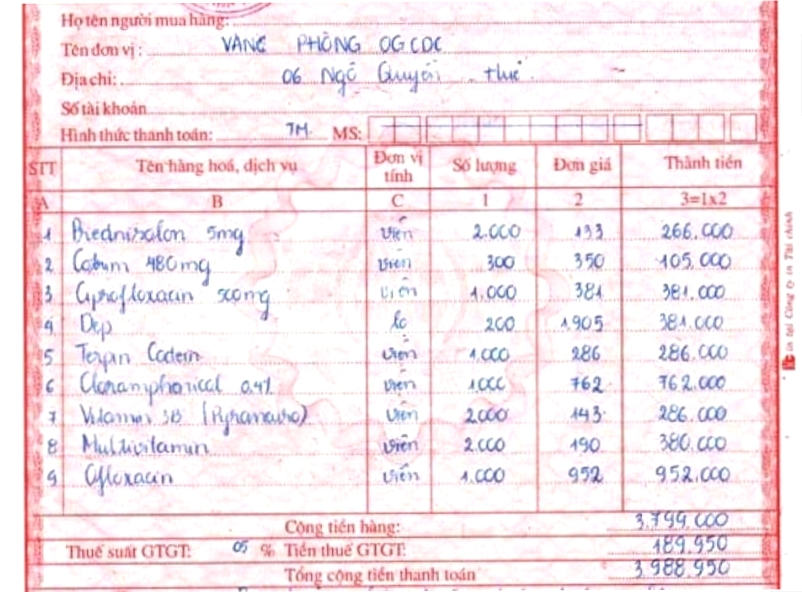 Họ tên người mua hàng:
Tên đơn vị: VĂNG PHÒNG OGCDC
Địa chỉ: 06 Ngô Quyền - Huế
Số tài khoản
Hình thức thanh toán: TM. MS:
STT Tên hàng hoá, dịch vụ Đơn vị tính Số lượng Đơn giá Thành tiền
A B C 1 2 3=1x2
1 Prednisolon 5mg viên 2.000 133 266.000
2 480mg viên 300 350 105.000
3 Ciprofloxacin 500mg viên 1.000 381 381.000
4 Dep lọ 200 1.905 381.000
5 Terpin Codein viên 1.000 286 286.000
6 Cloramphonical 0.4% viên 1.000 762 762.000
7 Vitamin 3B viên 2.000 143 286.000
8 Multivitamin viên 2.000 190 380.000
9 Ofloxacin viên 1.000 952 952.000
Cộng tiền hàng: 3.799.000
Thuế suất GTGT: 05 % Tiền thuế GTGT: 189.950
Tổng cộng tiền thanh toán 3.988.950
in tại Công ty in Tài chính